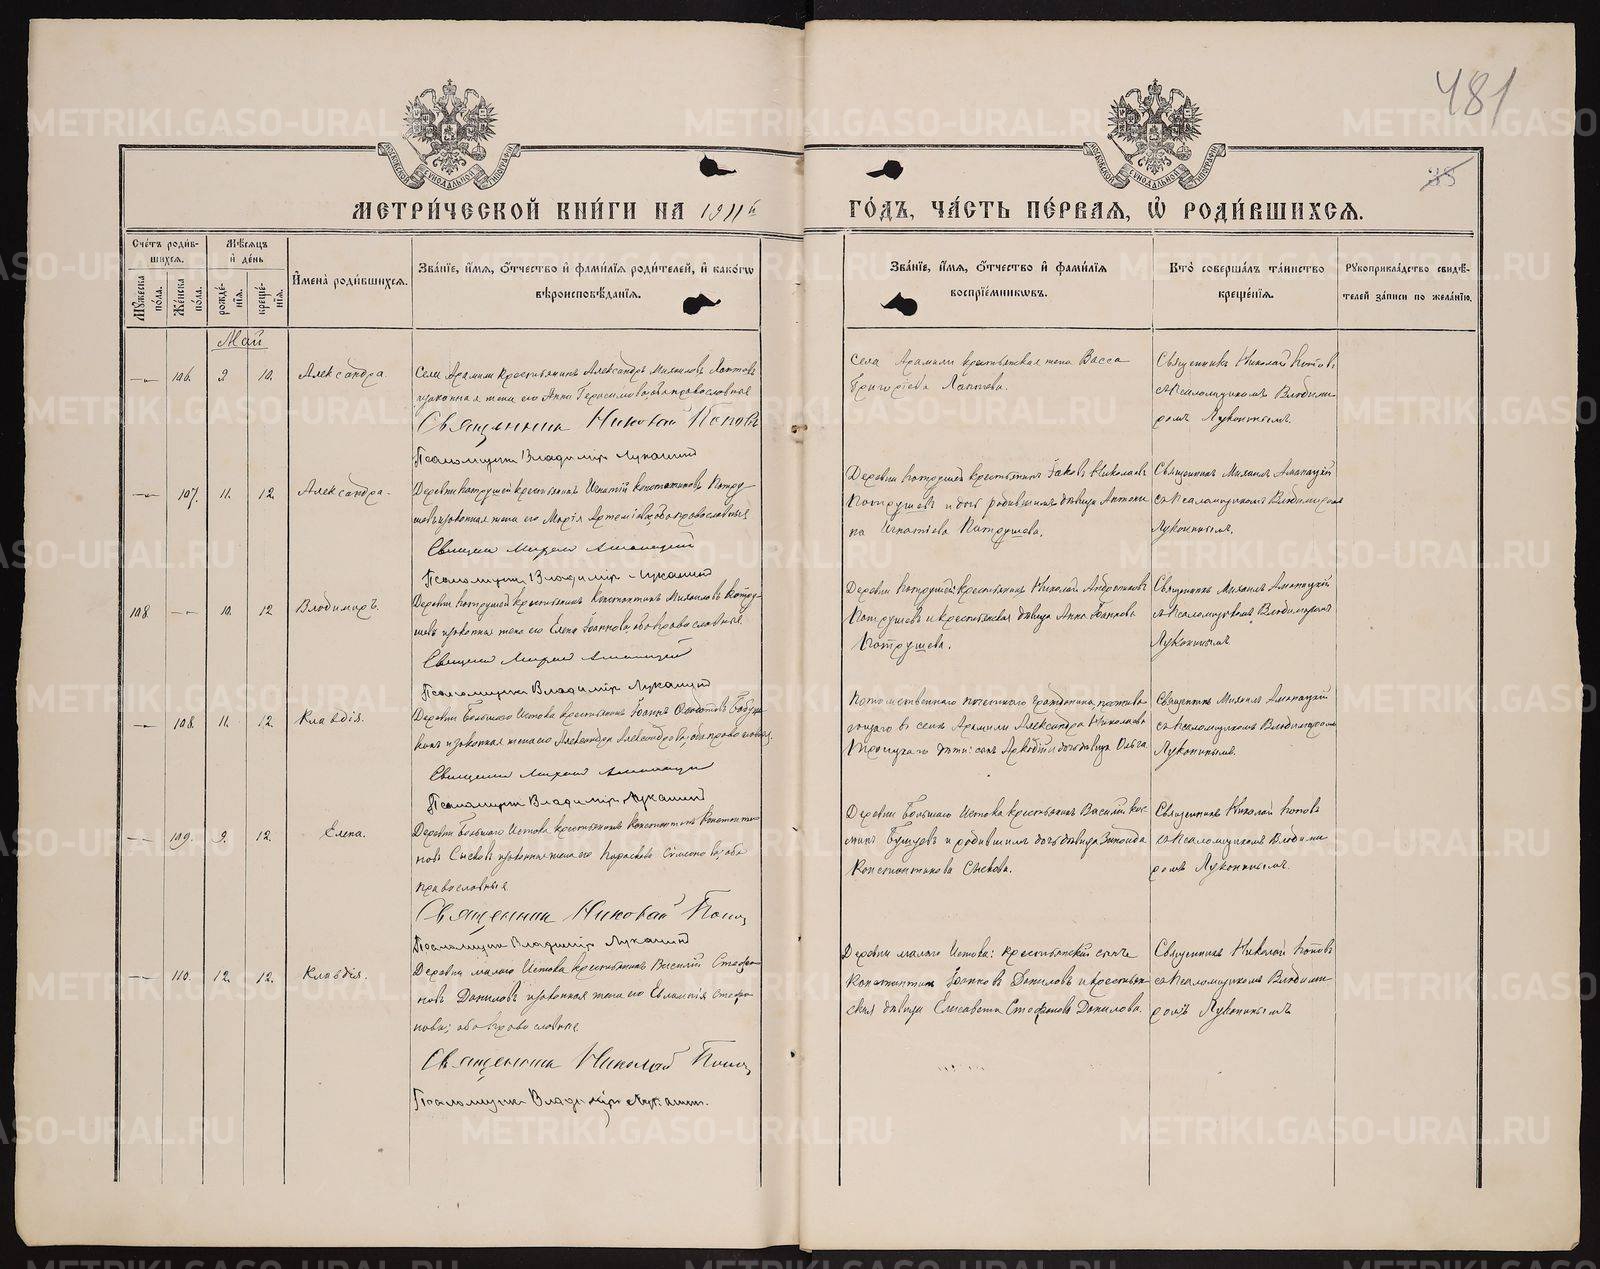 481
35
МОСКОВСКОЙ СѴНОДАЛЬНОЙ ТИПОГРАФІИ
МОСКОВСКОЙ СѴНОДАЛЬНОЙ ТИПОГРАФІИ
МЕТРИ́ЧЕСКОЙ КНИ́ГИ НА 1911й
ГО́ДЪ, ЧА́СТЬ ПЕ́РВАЯ, Ѡ҆ РОДИ́ВШИХСЯ.
Сче́тъ роди́в-
шихся.
Мꙋ́жеска по́ла.
Же́нска по́ла.
Мѣ́сяцъ и҆ де́нь
рожде́-нїя.
креще́-нїя.
И҆мена̀ роди́вшихся.
Зва́нїе, и҆́мя, ѻ҆́тчество и҆ фами́лїя роди́телей, и҆ како́гѡ
вѣроисповѣ́данїя.
Зва́нїе, и҆́мя, ѻ҆́тчество и҆ фами́лїя
воспрїе́мникѡвъ.
Кто̀ соверша́лъ та́инство
креще́нїя.
Рꙋкоприкла́дство свидѣ́-
телей за́писи по жела́нїю.
Май
106. 9 10. Александра
Села Арамили крестьянинъ Александръ Михаиловъ Лаптевъ
и законная жена его Анна Герасимова, оба православные
Священникъ Николай Поповъ
Псаломщикъ Владимір Луканин
Села Арамили крестьянская жена Васса
Григоріева Лаптева.
Священникъ Николай Поповъ
съ Псаломщикомъ Владими-
ромъ Луканинымъ.
107. 11. 12. Александра
Деревни Патрушей крестьянинъ Игнатій Константиновъ Патру-
шевъ и законная жена его Марія Артеміева, оба православные
Священник Михаил
Псаломщик Владимір Луканин
Деревни Патрушей крестьянинъ Іаковъ Николаевъ
Патрушевъ и дочь родившихъ дѣвица Антони-
на Игнатіева Патрушева.
Священникъ Михаилъ
съ Псаломщикомъ Владимиромъ
Луканинымъ.
108 10. 12 Владимиръ.
Деревни Патрушей крестьянинъ Константинъ Михаиловъ Патру-
шевъ и законная жена его Елена Іоаннова, оба православные
Священник Михаил
Псаломщик Владимір Луканин
Деревни Патрушей крестьянинъ Николай
Патрушевъ и крестьянская дѣвица Анна Іоаннова
Патрушева.
Священникъ Михаилъ
съ Псаломщикомъ Владимиромъ
Луканинымъ
108 11. 12. Клавдія.
Деревни Большого Истока крестьянинъ Іоаннъ
и законная жена его Александра Александрова, оба православные
Священник Михаил
Псаломщик Владимір Луканин
Потомственнаго почетнаго гражданина, прожива-
ющаго в селѣ Арамили Александра Николаева
Троицкаго дѣти: сынъ Аркадій и дочь дѣвица Ольга
Священникъ Михаилъ
съ Псаломщикомъ Владимиромъ
Луканинымъ.
109. 9. 12. Елена.
Деревни Большого Истока крестьянинъ Константинъ Константи-
новъ Сысковъ и законная жена его Параскева Симеонова, оба
православные
Священник Николай Попов
Псаломщик Владимір Луканин
Деревни Большого Истока крестьянинъ Василій Кос-
минъ и родившихъ дочь дѣвица Зинаида
Константинова Сыскова.
Священникъ Николай Поповъ
съ Псаломщикомъ Владими-
ромъ Луканинымъ.
110. 12. 12. Клавдія.
Деревни малаго Истока крестьянинъ Василій Стефа-
новъ Даниловъ и законная жена его Евлампія Стефа-
нова; оба православные
Священникъ Николай Попов
Псаломщик Владимір Луканин.
Деревни малаго Истока: крестьянскій сынъ
Константинъ Іоанновъ Даниловъ и крестьян-
ская дѣвица Елисавета Стефанова Данилова.
Священникъ Николай Поповъ
съ Псаломщикомъ Владими-
ромъ Луканинымъ
METRIKI.GASO-URAL.RU